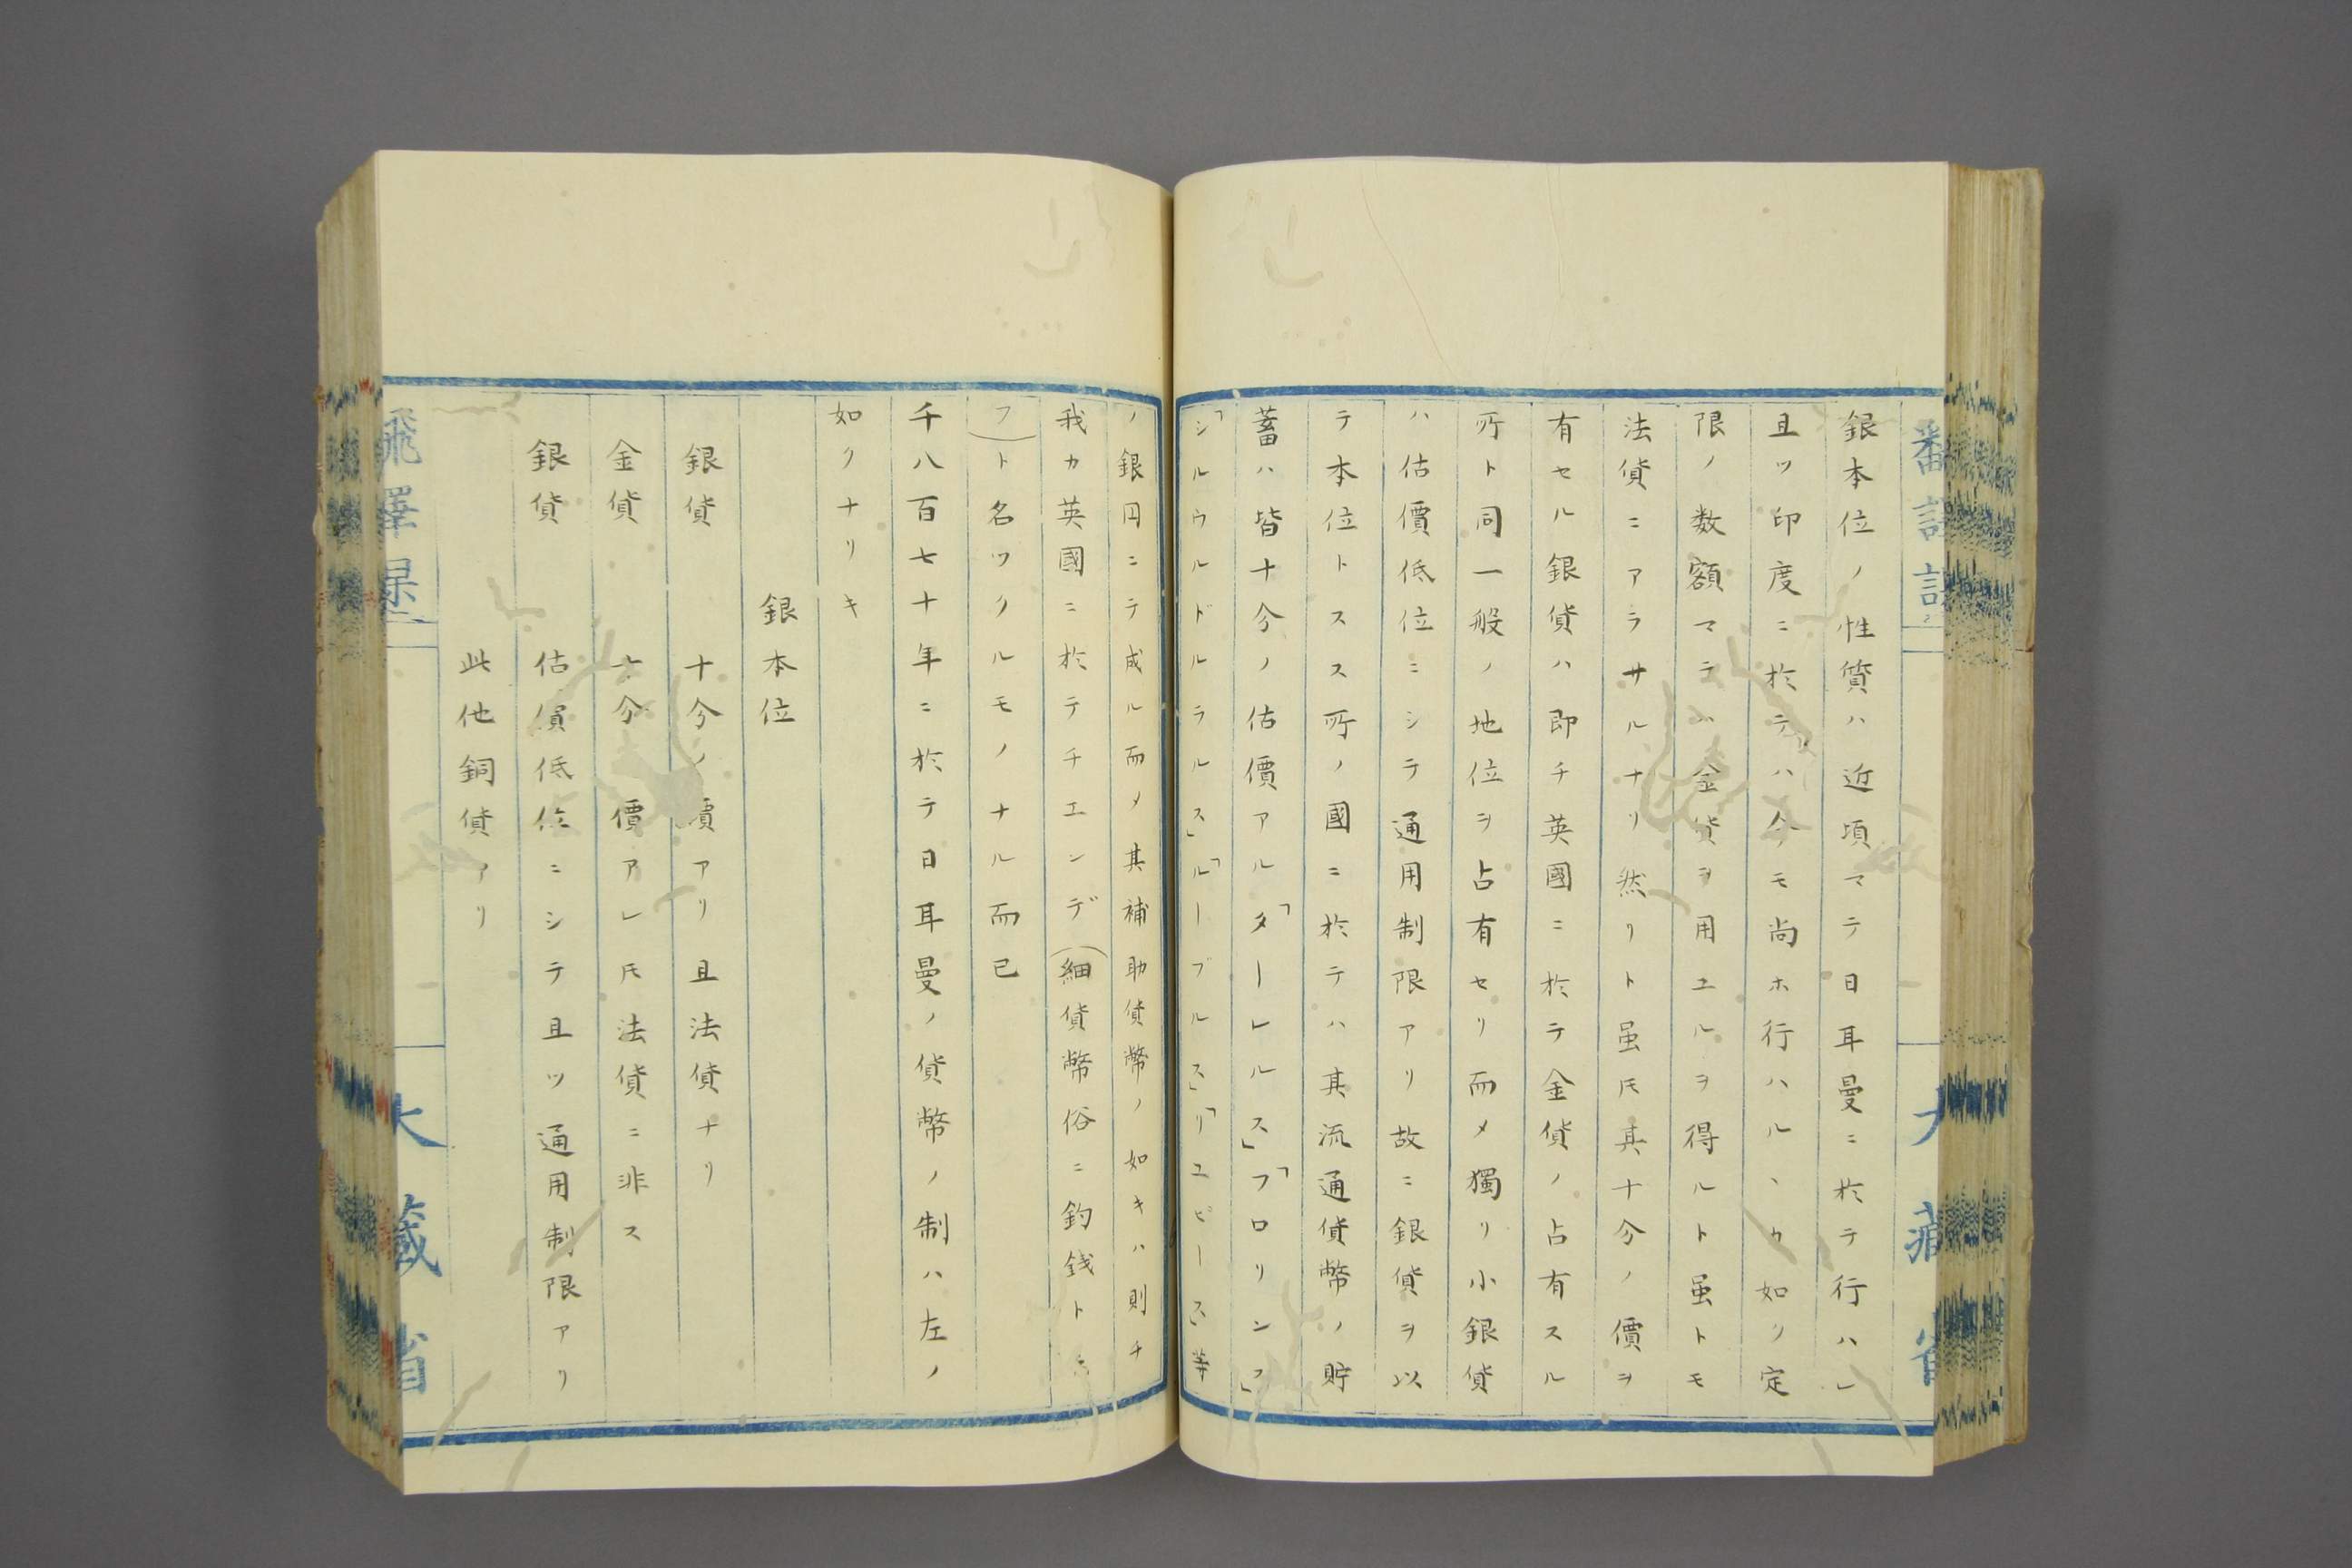 銀本位ノ性質ハ近頃マテ日耳曼ニ於テ行ハレ
且ツ印度ニ於テハ今モ尚ホ行ハルヽカ如ク定
限ノ数額マテハ金貨ヲ用ユルヲ得ルト虽トモ
法貨ニアラサルナリ然リト虽𪜈其十分ノ價ヲ
有セル銀貨ハ即チ英國ニ於テ金貨ノ占有スル
所ト同一般ノ地位ヲ占有セリ而メ獨リ小銀貨
ハ估價低位ニシテ通用制限アリ故ニ銀貨ヲ以
テ本位トスス所ノ國ニ於テハ其流通貨幣ノ貯
蓄ハ皆十分ノ估價アル「タールレルス」「フロリンス」
「シルウルドルラルス」「ルーブルス」「リユピース」等
ノ銀円ニテ成ル而メ其補助貨幣ノ如キハ則チ
我カ英國ニ於テチエンデ(細貨幣俗ニ釣銭トニ
フ)ト名ツクルモノナル而已
千八百七十年ニ於テ日耳曼ノ貨幣ノ制ハ左ノ
如クナリキ
銀本位
銀貨 十分ノ價アリ且法貨ナリ
金貨 十分ノ價アレ𪜈法貨ニ非ス
銀貨 估價低位ニシテ且ツ通用制限アリ
此他銅貨アリ
大藏省